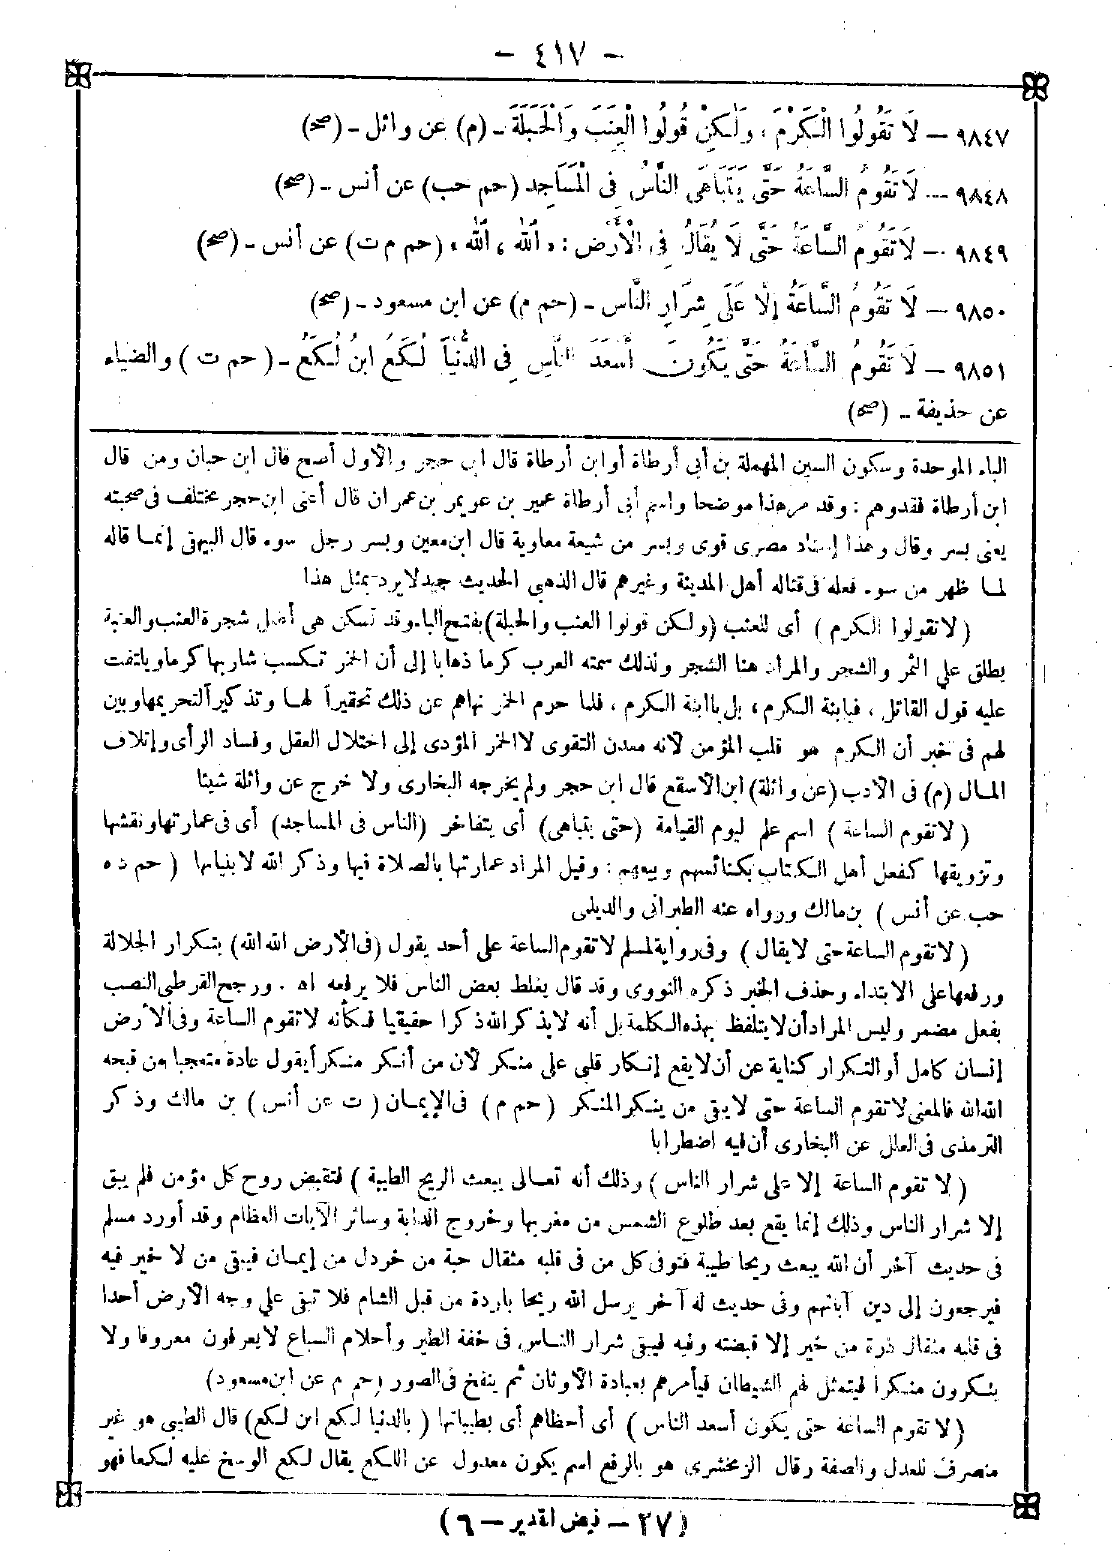 - ٤١٧ -
٩٨٤٧ – لَا تَقُولُوا الْكَرْمَ ، وَلَكِنْ قُولُوا الْعِنَبَ وَالْحَبَلَةَ – (م) عن وائل – (صح)
٩٨٤٨ – لَا تَقُومُ السَّاعَةُ حَتَّى يَتَبَاهَى النَّاسُ فِى الْمَسَاجِد (حم حب) عن أنس – (صح)
٩٨٤٩ – لَا تَقُومُ السَّاعَةُ حَتَّى لَا يُقَالَ فِى الْأَرْضِ : « اللهُ ، اللهُ » (حم م ت) عن أنس – (صح)
٩٨٥٠ – لَا تَقُومُ السَّاعَةُ إِلَّا عَلَى شِرَارِ النَّاس – (حم م) عن ابن مسعود – (صح)
٩٨٥١ – لَا تَقُومُ السَّاعَةُ حَتَّى يَكُونَ أَسْعَدَ النَّاسِ فِى الدُّنْيَا لُكَعُ ابنُ لُكَعُ – (حم ت) والضياء
عن حذيفة – (صح)
الباء الموحدة وسكون السين المهملة بن أبى أرطاة أو ابن أرطاة قال ابن حجر والأول أصح قال ابن حبان ومن قال
ابن أرطاة فقد وهم : وقد مر هذا موضحا واسم أبى أرطاة عمير بن عويمر بن عمران قال أعنى ابن حجر مختلف فى صحبته
يعنى بسر وقال وهذا إسناد مصرى قوى وبسر من شيعة معاوية قال ابن معين وبسر رجل سوء قال البيهقى إنما قاله
لما ظهر من سوء فعله فى قتاله أهل المدينة وغيرهم قال الذهبى الحديث جيد لا يرد بمثل هذا
(لا تقولوا الكرم) أى للعنب (ولكن قولوا العنب والحبلة) بفتح الباء وقد تسكن هى أصل شجرة العنب والعنبة
يطلق على الثمر والشجر والمراد هنا الشجر ولذلك سمته العرب كرما ذهابا إلى أن الخمر تكسب شاربها كرما ويلتفت
عليه قول القائل ، فيابنة الكرم ، بل ياابنة الكرم ، فلما حرم الخمر نهاهم عن ذلك تحقيراً لها وتذكيراً لتحريمها وبين
لهم فى خبر أن الكرم هو قلب المؤمن لأنه معدن التقوى لا الخمر المؤدى إلى اختلال العقل وفساد الرأى وإتلاف
المال (م) فى الأدب (عن وائلة) ابن الأسقع قال ابن حجر ولم يخرجه البخارى ولا خرج عن وائلة شيئا
(لا تقوم الساعة) اسم علم ليوم القيامة (حتى يتباهى) أى يتفاخر (الناس فى المساجد) أى فى عمارتها ونقشها
وتزويقها كفعل أهل الكتاب بكنائسهم وبيعهم : وقيل المراد عمارتها بالصلاة فيها وذكر الله لا بنيانها (حم د ه
حب عن أنس) بن مالك ورواه عنه الطبرانى والديلمى
(لا تقوم الساعة حتى لا يقال) وفى رواية لمسلم لا تقوم الساعة على أحد يقول (فى الأرض الله الله) بتكرار الجلالة
ورفعها على الابتداء وحذف الخبر ذكره النووى وقد قال يغلط بعض الناس فلا يرفعه اه . ورجح القرطبى النصب
بفعل مضمر وليس المراد أن لا يتلفظ بهذه الكلمة بل أنه لا يذكر الله ذكرا حقيقيا فكأنه لا تقوم الساعة وفى الأرض
إنسان كامل أو التكرار كناية عن أن لا يقع إنكار قلبى على منكر لأن من أنكر منكراً يقول عادة متعجبا من قبحه
الله الله فالمعنى لا تقوم الساعة حتى لا يبقى من ينكر المنكر (حم م) فى الإيمان (ت عن أنس) بن مالك وذكر
الترمذى فى العلل عن البخارى أن فيه اضطرابا
(لا تقوم الساعة إلا على شرار الناس) وذلك أنه تعالى يبعث الريح الطيبة) لتقبض روح كل مؤمن فلم يبق
إلا شرار الناس وذلك إنما يقع بعد طلوع الشمس من مغربها وخروج الدابة وسائر الآيات العظام وقد أورد مسلم
فى حديث آخر أن الله يبعث ريحا طيبة فتوفى كل من فى قلبه مثقال حبة من خردل من إيمان فيبقى من لا خير فيه
فيرجعون إلى دين آبائهم وفى حديث له آخر يرسل الله ريحا باردة من قبل الشام فلا تبقى على وجه الأرض أحدا
فى قلبه مثقال ذرة من خير إلا قبضته وفيه فيبقى شرار الناس فى خفة الطير وأحلام السباع لا يعرفون معروفا ولا
ينكرون منكراً فيتمثل لهم الشيطان فيأمرهم بعبادة الأوثان ثم ينفخ فى الصور (حم م عن ابن مسعود)
(لا تقوم الساعة حتى يكون أسعد الناس) أى أحظاهم أى بطيباتها (بالدنيا لكع ابن لكع) قال الطيبى هو غير
منصرف للعدل والصفة وقال الزمخشرى هو بالرفع اسم يكون معدول عن اللكع يقال لكع الوسخ عليه لكعا فهو
(٢٧ – فيض القدير – ٦)